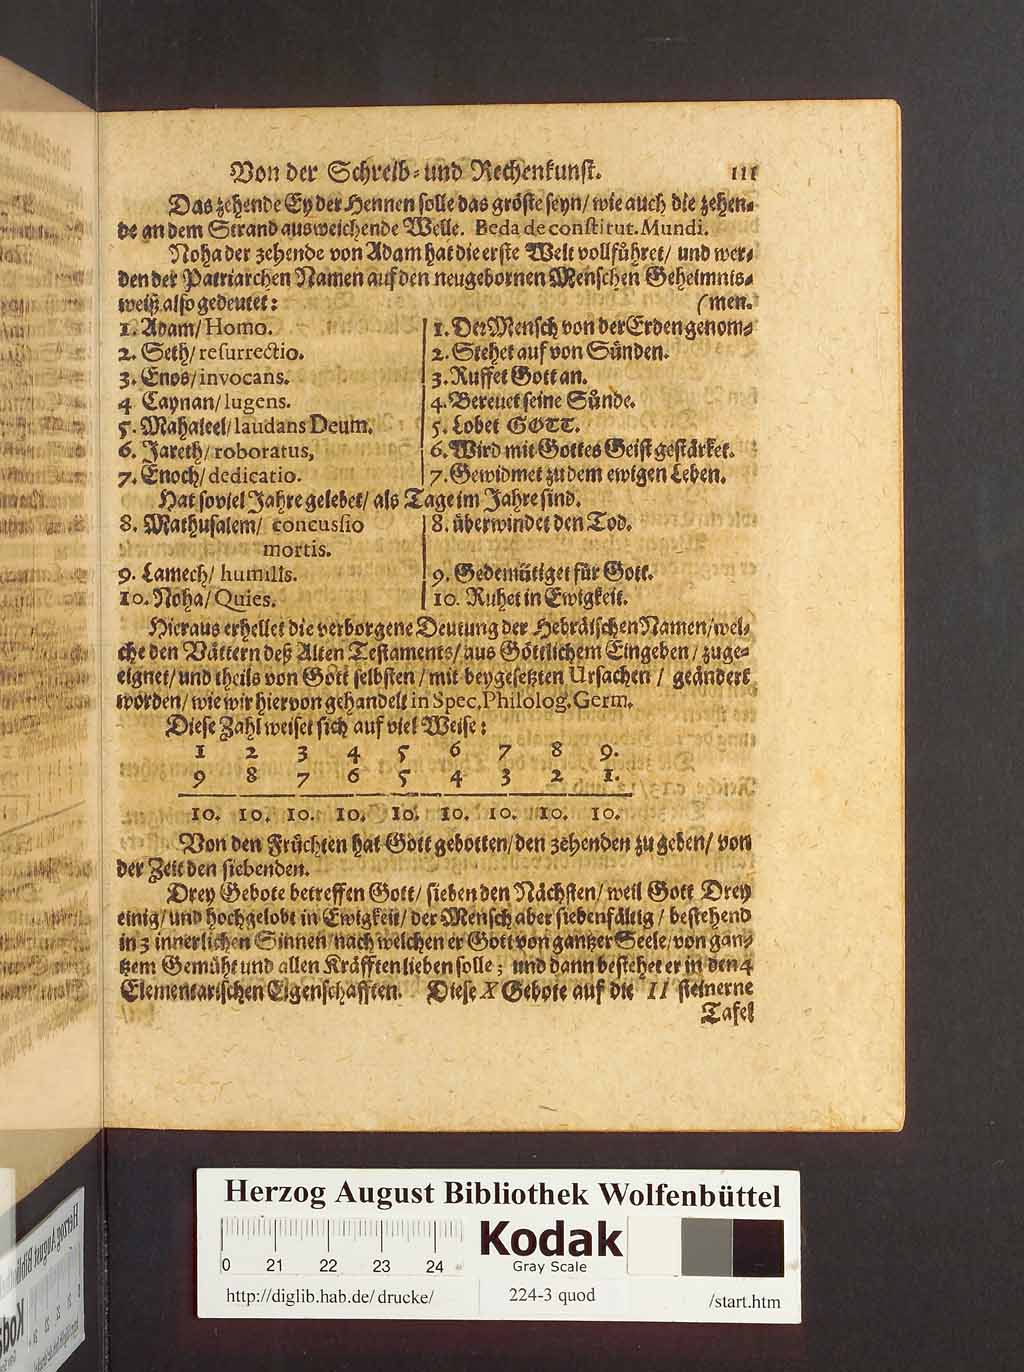 Von der Schreib- und Rechenkunst. 111
Das zehende Ey der Hennen solle das gröste seyn/ wie auch die zehen-
de an dem Strand ausweichende Welle. Beda de constitut. Mundi.
Noha der zehende von Adam hat die erste Welt vollführet/ und wer-
den der Patriarchen Namen auf den neugebornen Menschen Geheimnis-
weiß also gedeutet: (men.
1. Adam/ Homo. 1. Der Mensch von der Erden genom-
2. Seth/ resurrectio. 2. Stehet auf von Sünden.
3. Enos/ invocans. 3. Ruffet Gott an.
4 Caynan/ lugens. 4. Bereuet seine Sünde.
5. Mahaleel/ laudans Deum. 5. Lobet GOTT.
6. Jareth/ roboratus, 6. Wird mit Gottes Geist gestärket.
7. Enoch/ dedicatio. 7. Gewidmet zu dem ewigen Leben.
Hat soviel Jahre gelebet/ als Tage im Jahre sind.
8. Mathusalem/ concussio 8. überwindet den Tod.
mortis.
9. Lamech/ humilis. 9. Gedemütiget für Gott.
10. Noha/ Quies. 10. Ruhet in Ewigkeit.
Hieraus erhellet die verborgene Deutung der Hebräischen Namen/ wel-
che den Vättern deß Alten Testaments/ aus Göttlichem Eingeben/ zuge-
eignet/ und theils von Gott selbsten/ mit beygesetzten Ursachen/ geändert
worden/ wie wir hiervon gehandelt in Spec. Philolog. Germ.
Diese Zahl weiset sich auf viel Weise:
1 2 3 4 5 6 7 8 9.
9 8 7 6 5 4 3 2 1.
10. 10. 10. 10. 10. 10. 10. 10. 10.
Von den Früchten hat Gott gebotten/ den zehenden zu geben/ von
der Zeit den siebenden.
Drey Gebote betreffen Gott/ sieben den Nächsten/ weil Gott Drey
einig/ und hochgelobt in Ewigkeit/ der Mensch aber siebenfältig/ bestehend
in 3 innerlichen Sinnen/ nach welchen er Gott von gantzer Seele/ von gan-
tzem Gemüht und allen Kräfften lieben solle; und dann bestehet er in den 4
Elementarischen Eigenschafften. Diese X Gebote auf die II steinerne
Tafel
Herzog August Bibliothek Wolfenbüttel
Kodak
Gray Scale
0 21 22 23 24
http://diglib.hab.de/drucke/ 224-3 quod /start.htm